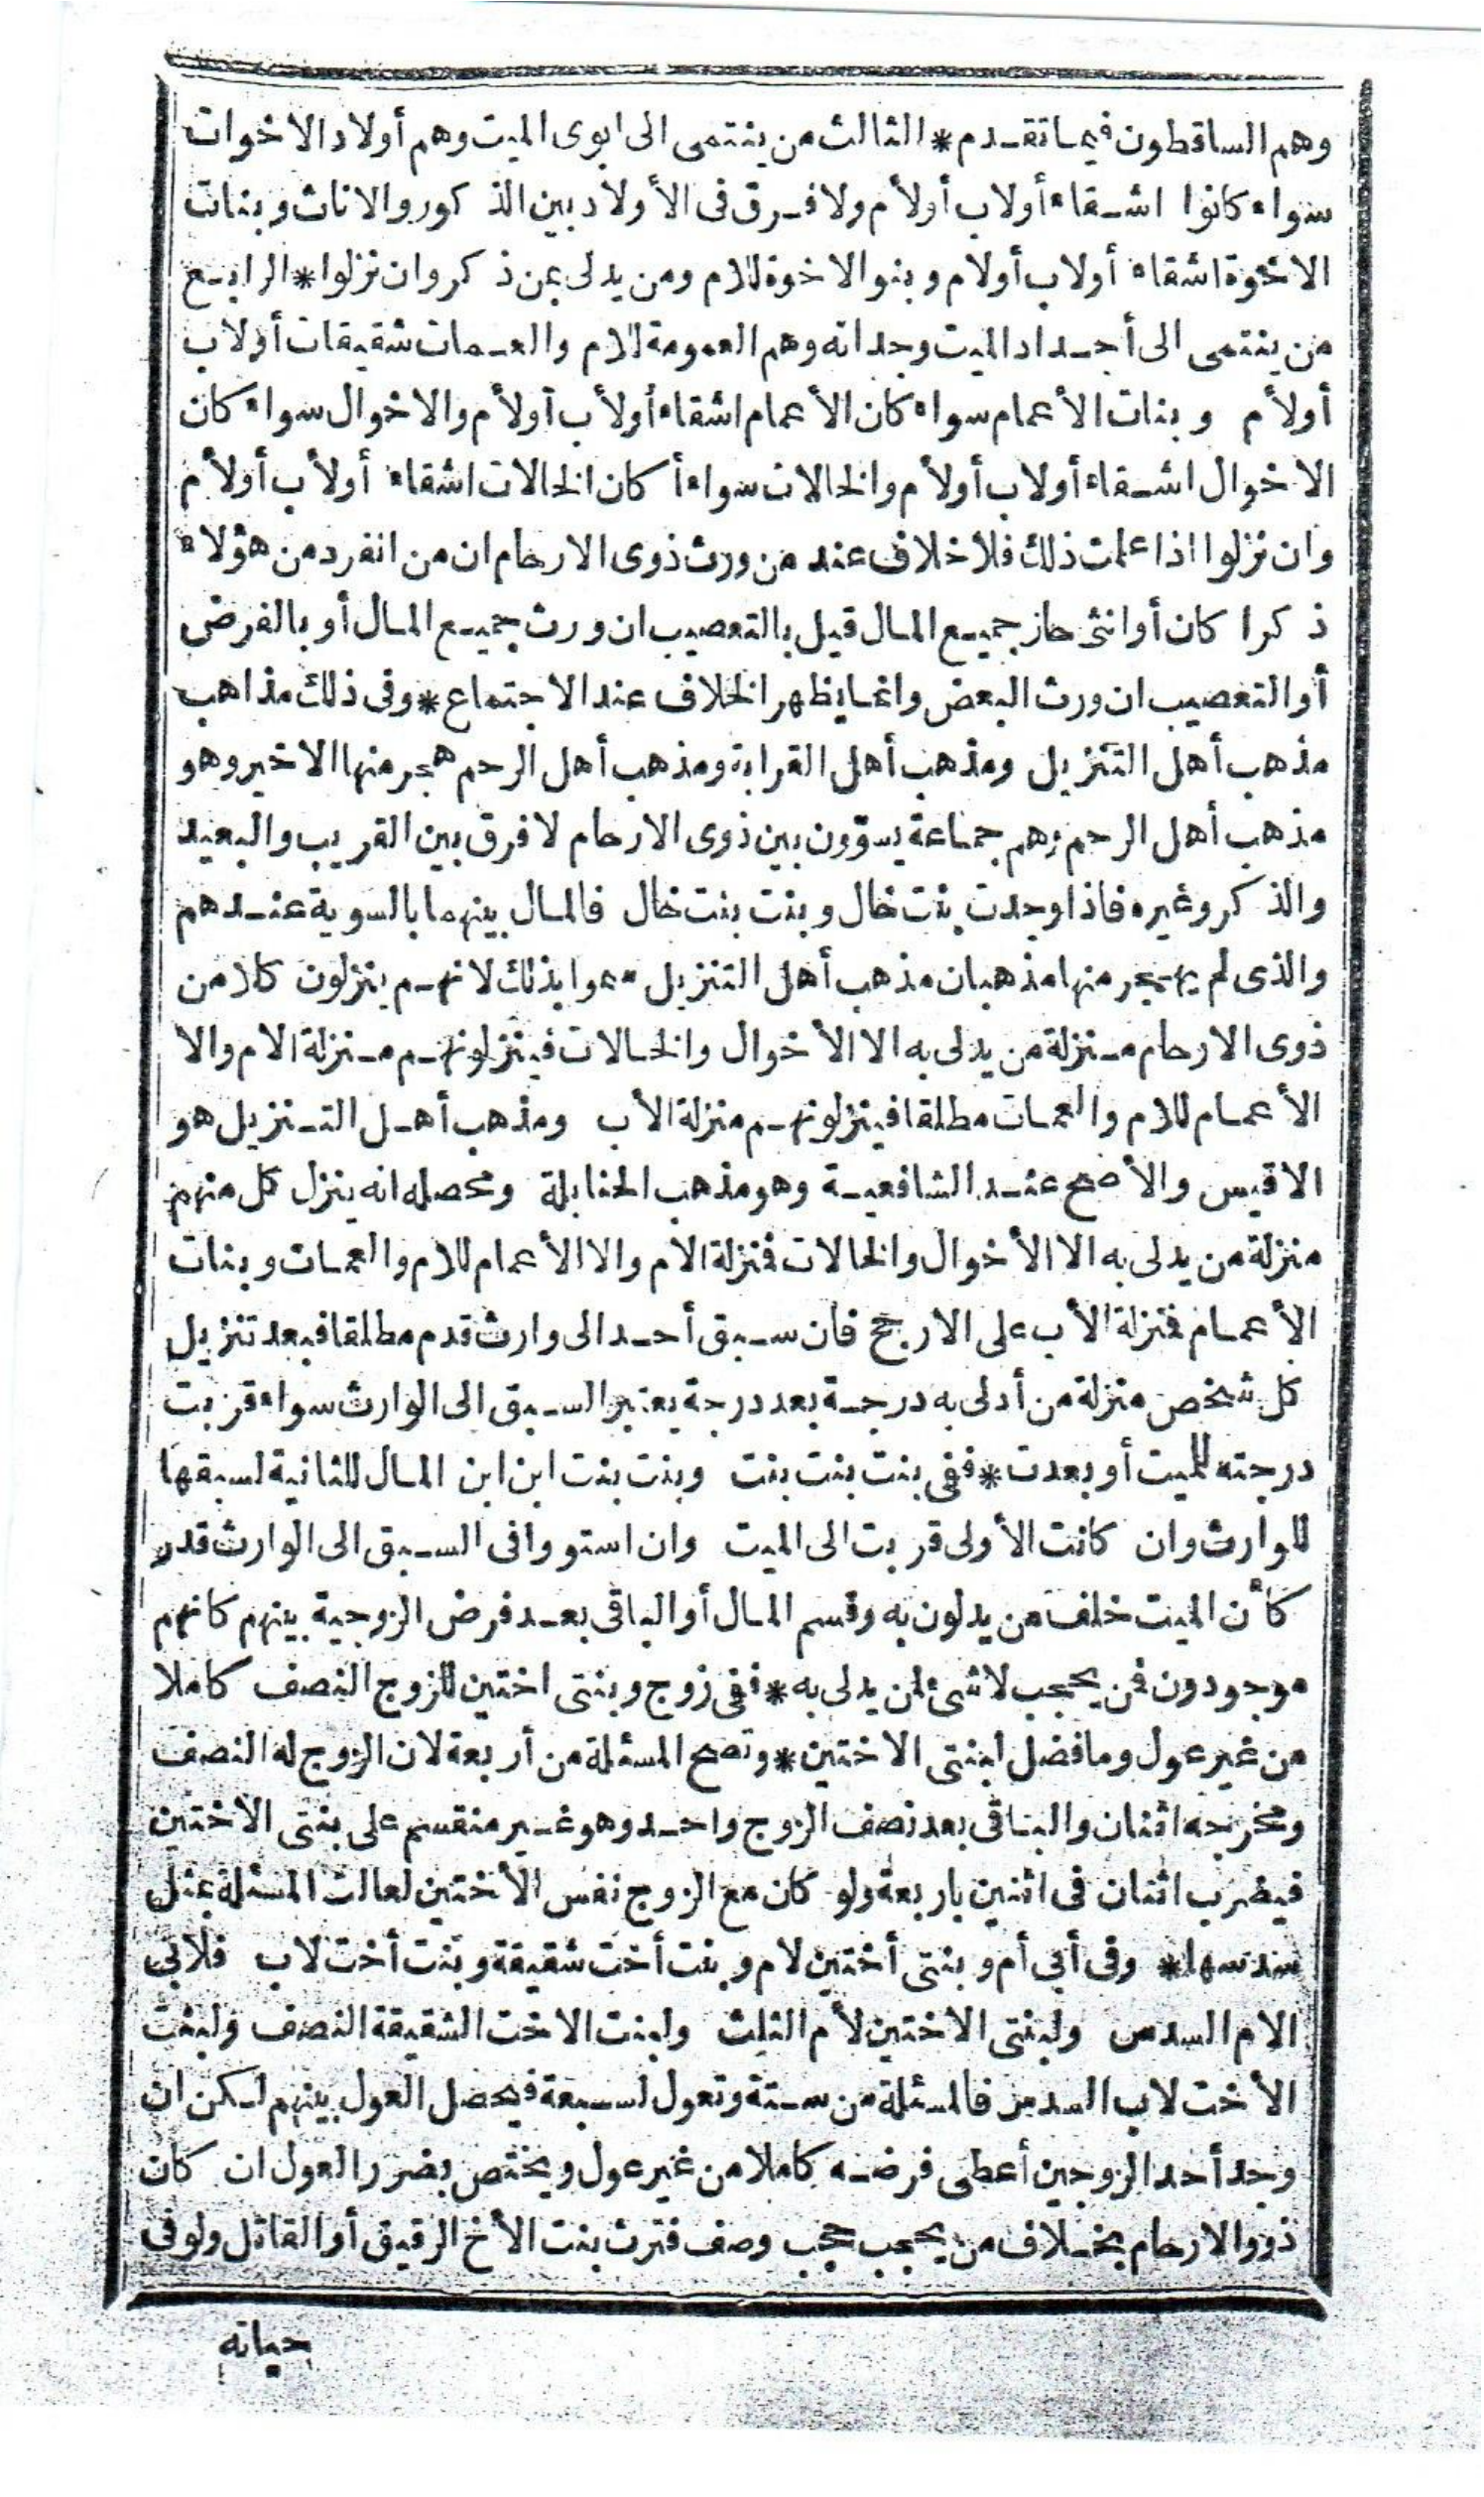 وهم الساقطون فيما تقدم * الثالث من ينتمى الى ابوى الميت وهم أولاد الاخوات
سواء كانوا اشقاء أولاب أولأم ولا فرق فى الأولاد بين الذكور والاناث وبنات
الاخوة اشقاء أولاب أولام وبنو الاخوة للام ومن يدلى بمن ذكر وان نزلوا * الرابع
من ينتمى الى أجداد الميت وجداته وهم العمومة للام والعمات شقيقات أولاب
أولأم وبنات الأعمام سواء كان الأعمام اشقاء أولأب أولأم والاخوال سواء كان
الاخوال اشقاء أولاب أولأم والخالات سواء أكان الخالات اشقاء أولأب أولأم
وان نزلوا اذا علمت ذلك فلا خلاف عند من ورث ذوى الارحام ان من انفرد من هؤلاء
ذكرا كان أو انثى حاز جميع المال قيل بالتعصيب ان ورث جميع المال أو بالفرض
أو التعصيب ان ورث البعض وانما يظهر الخلاف عند الاجتماع * وفى ذلك مذاهب
مذهب أهل التنزيل ومذهب أهل القرابة ومذهب أهل الرحم هجر منها الاخير وهو
مذهب أهل الرحم وهم جماعة يسوّون بين ذوى الارحام لا فرق بين القريب والبعيد
والذكر وغيره فاذا وجدت بنت خال وبنت بنت خال فالمال بينهما بالسوية عندهم
والذى لم يهجر منها مذهبان مذهب أهل التنزيل سموا بذلك لانهم ينزلون كلا من
ذوى الارحام منزلة من يدلى به الا الأخوال والخالات فينزلونهم منزلة الام والا
الأعمام للام والعمات مطلقا فينزلونهم منزلة الأب ومذهب أهل التنزيل هو
الاقيس والأصح عند الشافعية وهو مذهب الحنابلة ومحصله انه ينزل كل منهم
منزلة من يدلى به الا الأخوال والخالات فمنزلة الام والا الأعمام للام والعمات وبنات
الأعمام فمنزلة الأب على الارجح فان سبق أحد الى وارث قدم مطلقا فبعد تنزيل
كل شخص منزلة من أدلى به درجة بعد درجة يعتبر السبق الى الوارث سواء قربت
درجته للميت أو بعدت * ففى بنت بنت بنت وبنت بنت ابن ابن المال للثانية لسبقها
للوارث وان كانت الأولى قربت الى الميت وان استووا فى السبق الى الوارث قدر
كأن الميت خلف من يدلون به وقسم المال أو الباقى بعد فرض الزوجية بينهم كانهم
موجودون فمن يحجب لا شئ لمن يدلى به * ففى زوج وبنتى اختين للزوج النصف كاملا
من غير عول وما فضل لبنتى الاختين * وتصح المسئلة من أربعة لان الزوج له النصف
ومخرجه اثنان والباقى بعد نصف الزوج واحد وهو غير منقسم على بنتى الاختين
فيضرب اثنان فى اثنين باربعة ولو كان مع الزوج نفس الأختين لعالت المسئلة بمثل
سدسها * وفى أبى أم وبنتى أختين لام وبنت أخت شقيقة وبنت أخت لاب فلابى
الام السدس ولبنتى الاختين لأم الثلث ولبنت الاخت الشقيقة النصف ولبنت
الأخت لاب السدس فالمسئلة من ستة وتعول لسبعة فيحصل العول بينهم لكن ان
وجد أحد الزوجين أعطى فرضه كاملا من غير عول ويختص بضرر العول ان كان
ذوو الارحام بخلاف من يحجب حجب وصف فترث بنت الأخ الرقيق أو القاتل ولو فى
حياته